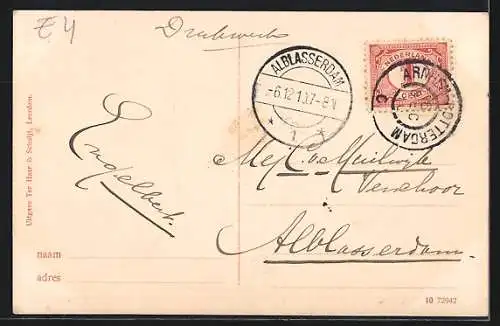 E4
Drukwerk
NEDERLAND
ARNHEM-ROTTERDAM
C
ALBLASSERDAM
-6.12.10.7-8V
* 1 *
Engelbert.
Mej. Co
Alblasserdam
naam
adres
Uitgave Ter Haar & Schuijt, Leerdam.
10 72942